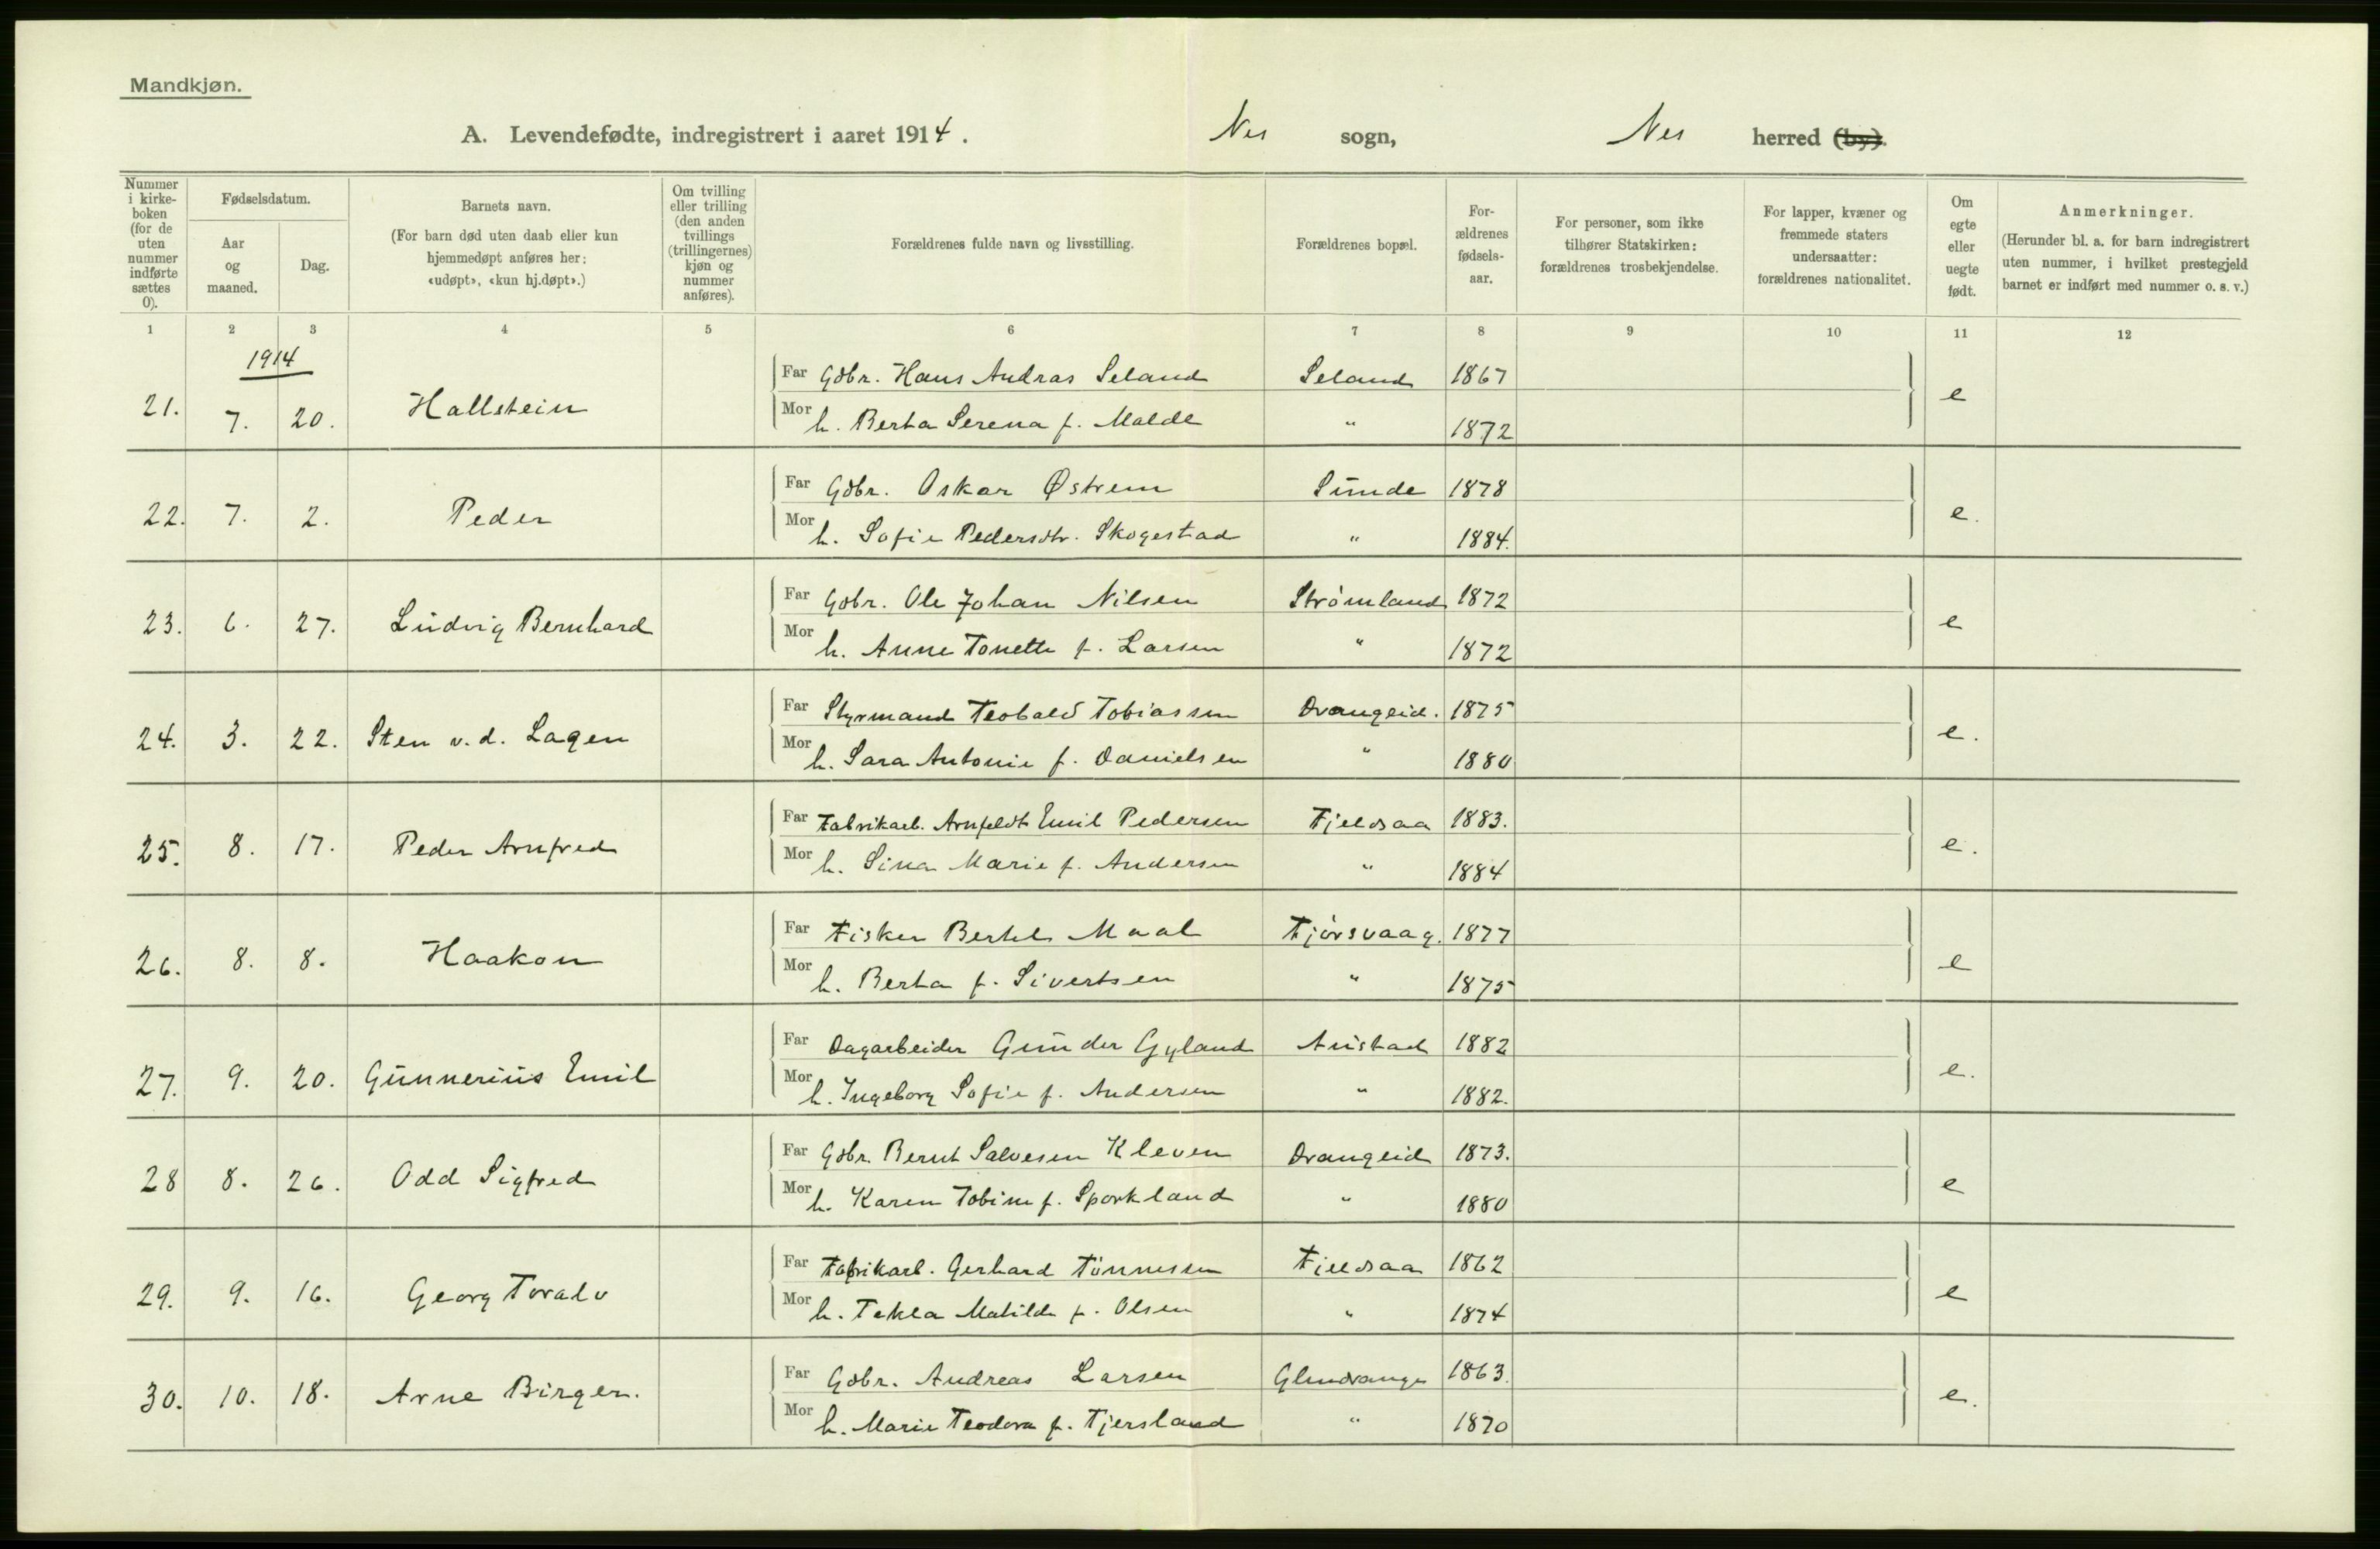 Mandkjøn.
A. Levendefødte, indregistrert i aaret 1914. Nes sogn, Nes herred (by).
Nummer i kirkeboken (for de uten nummer indførte sættes 0).
Fødselsdatum.
Aar og maaned.
Dag.
Barnets navn.
(For barn død uten daab eller kun hjemmedøpt anføres her: «udøpt», «kun hj.døpt».)
Om tvilling eller trilling (den anden tvillings (trillingernes) kjøn og nummer anføres).
Forældrenes fulde navn og livsstilling.
Forældrenes bopæl.
For-ældrenes fødsels-aar.
For personer, som ikke tilhører Statskirken: forældrenes trosbekjendelse.
For lapper, kvæner og fremmede staters undersaatter: forældrenes nationalitet.
Om egte eller uegte født.
Anmerkninger.
(Herunder bl. a. for barn indregistrert uten nummer, i hvilket prestegjeld barnet er indført med nummer o. s. v.)
1 2 3 4 5 6 7 8 9 10 11 12
1914
21. 7. 20. Hallstein Far Gdbr. Hans Andras Seland Seland 1867 e
Mor h. Berta Serena f. Malde " 1872
22. 7. 2. Peder Far Gdbr. Oskar Østrem Sunde 1878 e.
Mor h. Sofie Pedersdtr. Skogestad " 1884.
23. 6. 27. Ludvig Bernhard Far Gdbr. Ole Johan Nilsen Strømland 1872 e
Mor h. Anne Tonette f. Larsen " 1872
24. 3. 22. Sten v. d. Lagen Far Styrmand Teobald Tobiassen Drangeid. 1875 e.
Mor h. Sara Antonie f. Danielsen " 1880
25. 8. 17. Peder Arnfred Far Fabrikarb. Arnfeldt Emil Pedersen Fjeldsaa 1883. e.
Mor h. Sina Marie f. Andersen " 1884
26. 8. 8. Haakon Far Fisker Bertel Maal Fjørsvaag. 1877 e
Mor h. Berta f. Sivertsen " 1875
27. 9. 20. Gunnerius Emil Far Dagarbeider Gunder Gyland Austad 1882 e.
Mor h. Ingeborg Sofie f. Andersen " 1882.
28 8. 26. Odd Sigfred Far Gdbr. Bernt Salvesen Kleven Drangeid 1873. e
Mor h. Karen Tobine f. Sporkland " 1880
29. 9. 16. Georg Toralv Far Fabrikarb. Gerhard Tønnessen Fjeldsaa 1862 e
Mor h. Tekla Matilde f. Olsen " 1874
30. 10. 18. Arne Birger. Far Gdbr. Andreas Larsen Glendrange 1863. e.
Mor h. Marie Teodora f. Tjersland " 1870